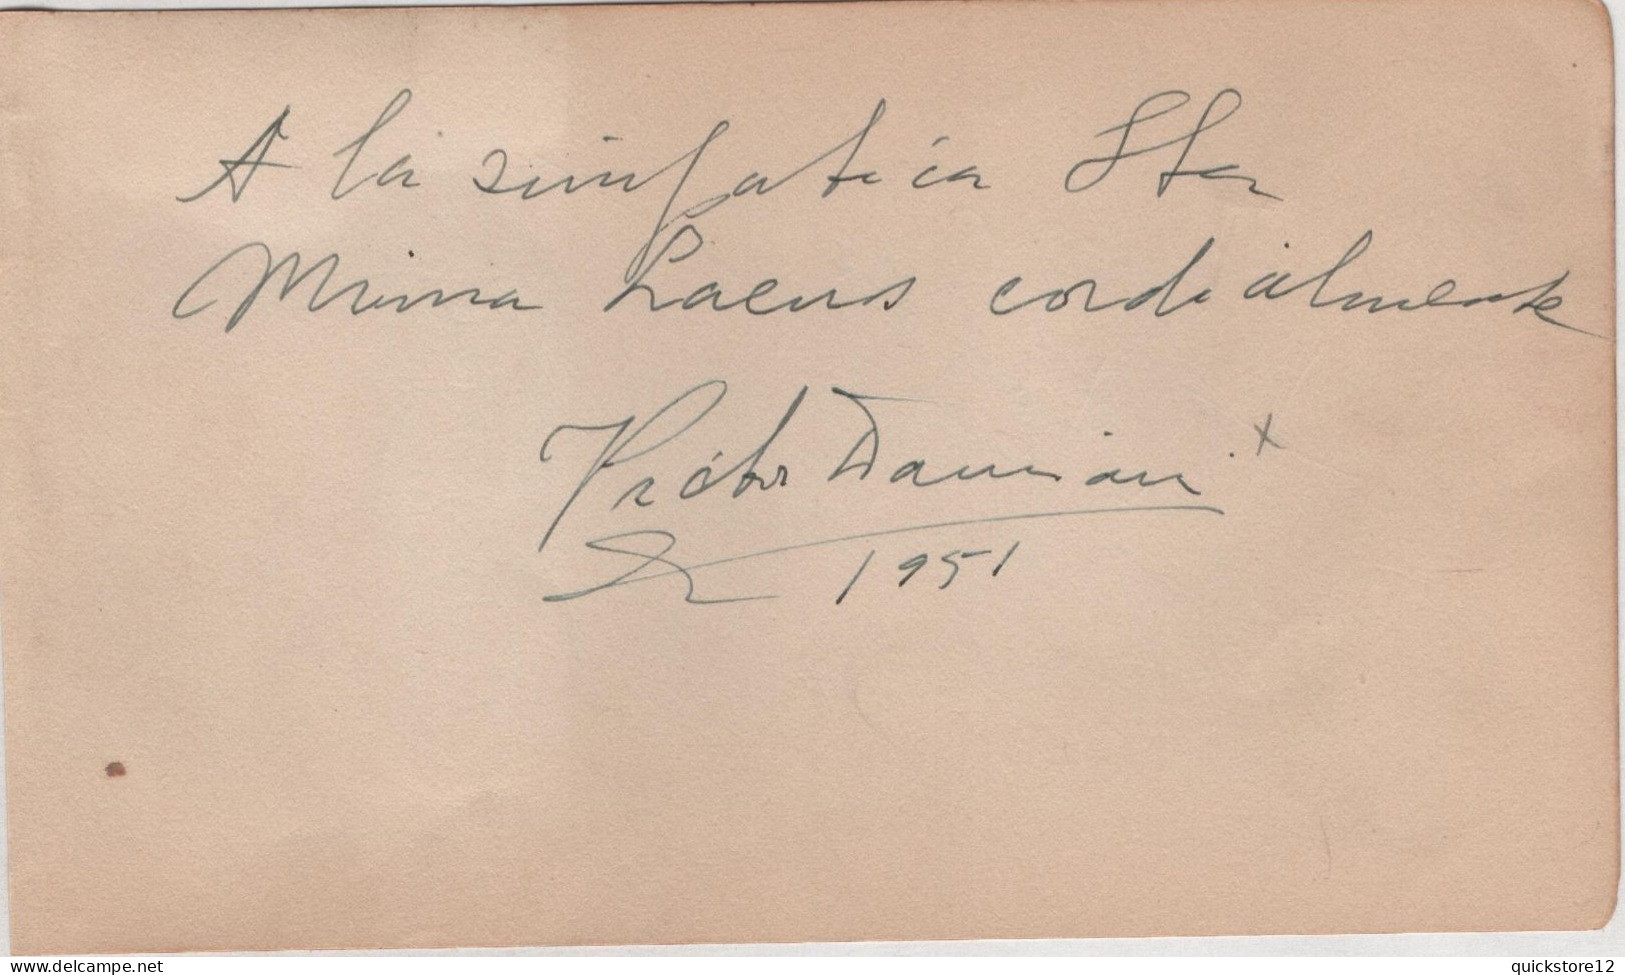 A la simpatica Sta
Mima cordialmente
Victor Damiani
1951
www.delcampe.net
quickstore12